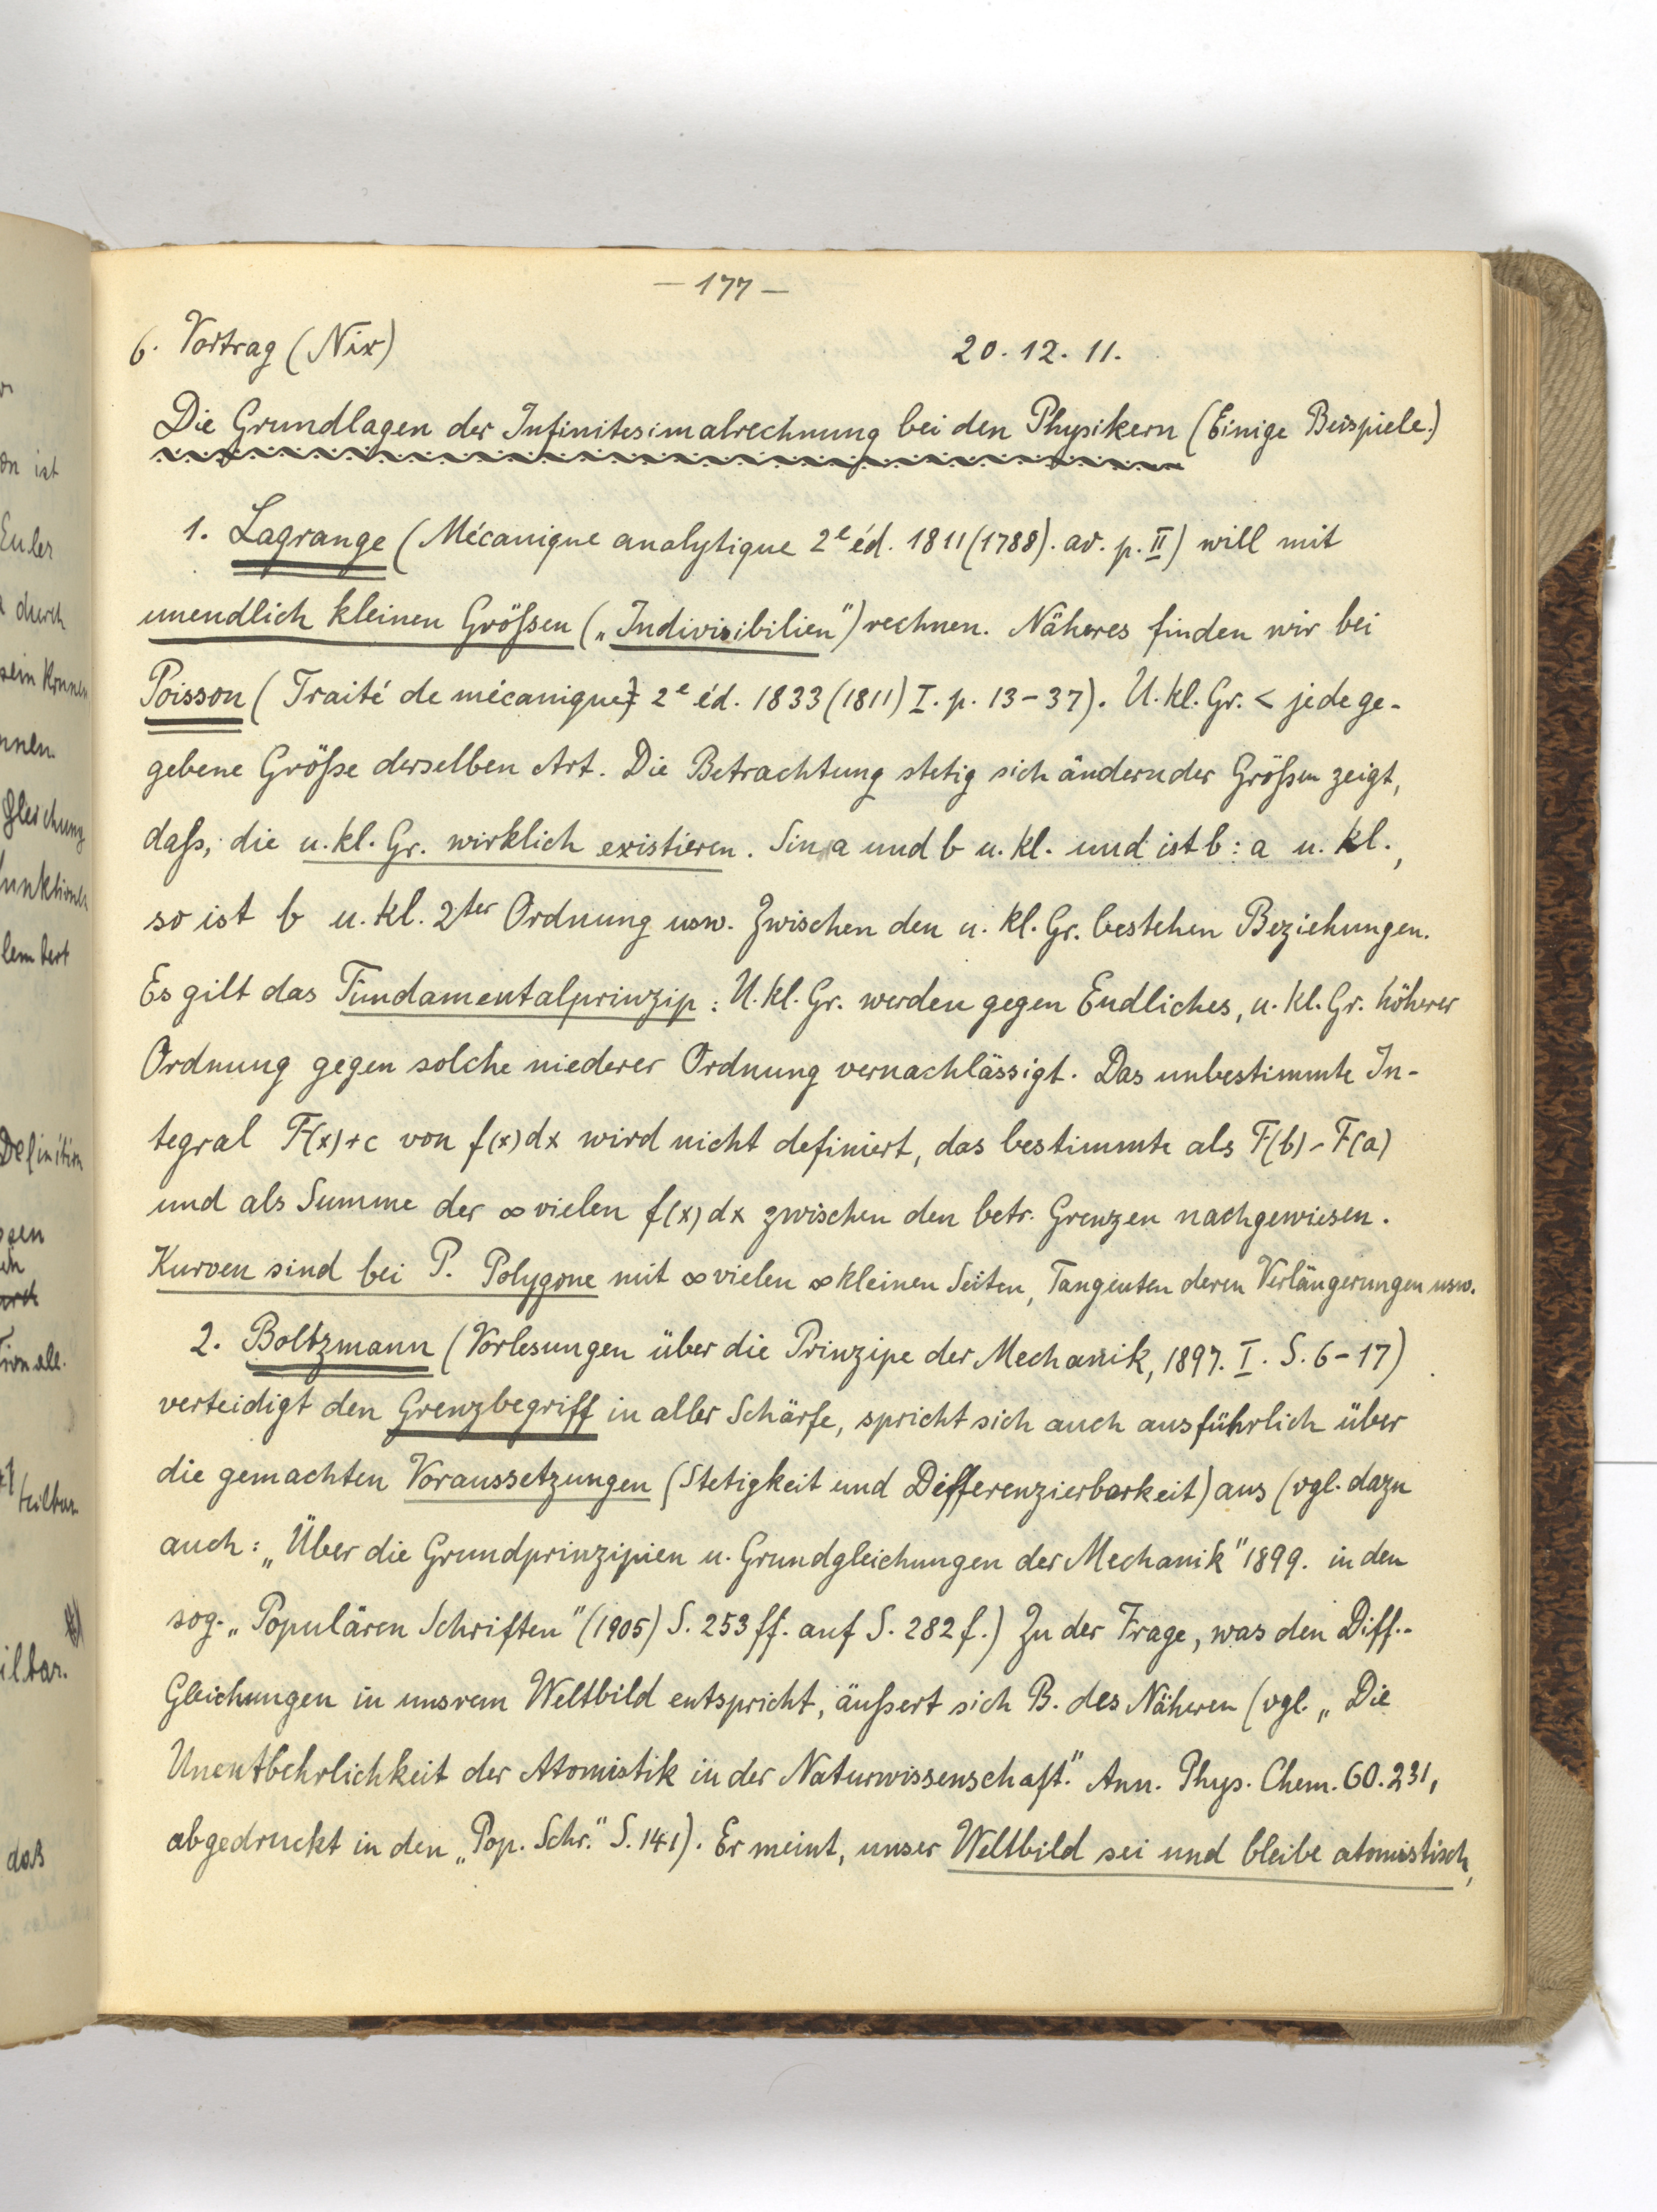 — 177 —
6. Vortrag (Nix) 20. 12. 11.
Die Grundlagen der Infinitesimalrechnung bei den Physikern (Einige Beispiele.)
1. Lagrange (Mécanique analytique 2e éd. 1811 (1788). av. p. II) will mit
unendlich kleinen Größen („Indivisibilien") rechnen. Näheres finden wir bei
Poisson (Traité de mécanique 2e éd. 1833 (1811) I. p. 13-37). U. kl. Gr. < jede ge-
gebene Größe derselben Art. Die Betrachtung stetig sich ändernder Größen zeigt,
daß, die u. kl. Gr. wirklich existieren. Sin a und b u. kl. und ist b : a u. kl.,
so ist b u. kl. 2ter Ordnung usw. Zwischen den u. kl. Gr. bestehen Beziehungen.
Es gilt das Fundamentalprinzip: U. kl. Gr. werden gegen Endliches, u. kl. Gr. höherer
Ordnung gegen solche niederer Ordnung vernachlässigt. Das unbestimmte In-
tegral F(x)+c von f(x)dx wird nicht definiert, das bestimmte als F(b)-F(a)
und als Summe der ∞ vielen f(x)dx zwischen den betr. Grenzen nachgewiesen.
Kurven sind bei P. Polygone mit ∞ vielen ∞ kleinen Seiten, Tangenten deren Verlängerungen usw.
2. Boltzmann (Vorlesungen über die Prinzipe der Mechanik, 1897. I. S. 6-17)
verteidigt den Grenzbegriff in aller Schärfe, spricht sich auch ausführlich über
die gemachten Voraussetzungen (Stetigkeit und Differenzierbarkeit) aus (vgl. dazu
auch: „Über die Grundprinzipien u. Grundgleichungen der Mechanik" 1899. in den
sog. „Populären Schriften" (1905) S. 253 ff. auf S. 282 f.) Zu der Frage, was den Diff.-
Gleichungen in unsrem Weltbild entspricht, äußert sich B. des Näheren (vgl. „Die
Unentbehrlichkeit der Atomistik in der Naturwissenschaft." Ann. Phys. Chem. 60. 231,
abgedruckt in den „Pop. Schr." S. 141). Er meint, unser Weltbild sei und bleibe atomistisch,